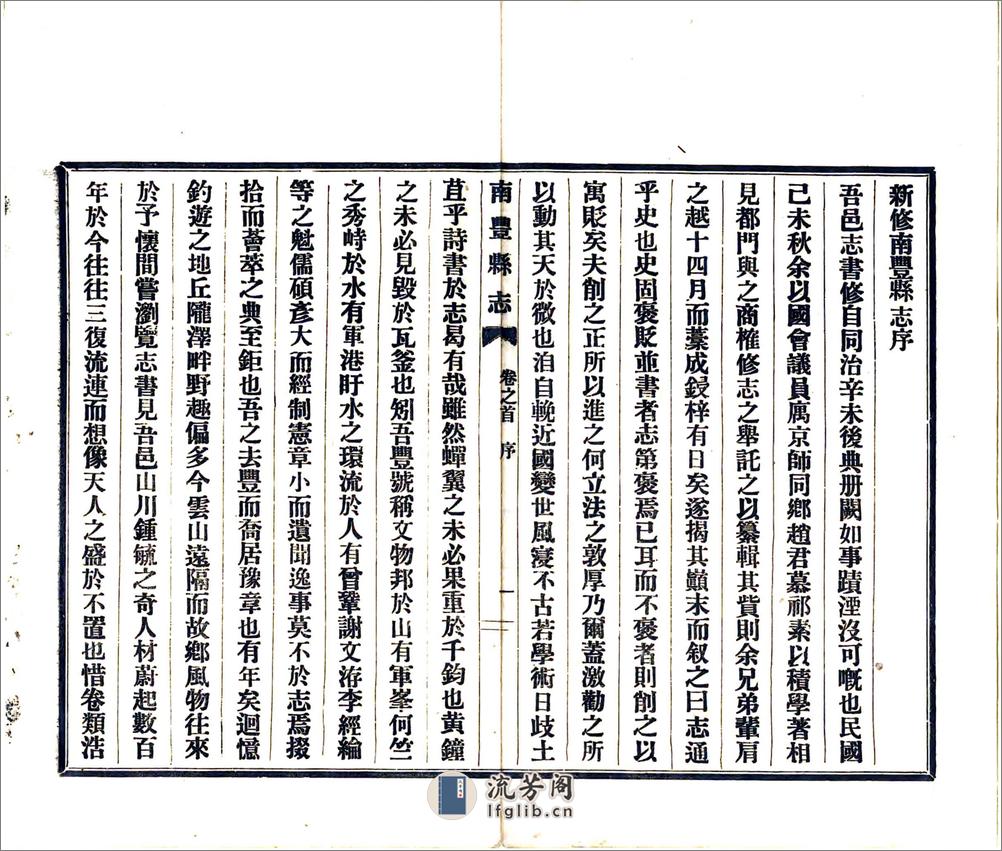 新修南豐縣志序
吾邑志書修自同治辛未後典册闕如事蹟湮沒可嘅也民國
己未秋余以國會議員寓京師同鄉趙君慕祁素以積學著相
見都門與之商榷修志之舉託之以纂輯其貲則余兄弟輩肩
之越十四月而藁成鋟梓有日矣遂揭其顚末而叙之曰志通
乎史也史固褒貶並書者志第褒焉已耳而不褒者則削之以
寓貶矣夫削之正所以進之何立法之敦厚乃爾蓋激勸之所
以動其天於微也洎自輓近國變世風寖不古若學術日歧土
南豐縣志
卷之首
序
一
苴乎詩書於志曷有哉雖然蟬翼之未必果重於千鈞也黄鐘
之未必見毀於瓦釜也矧吾豐號稱文物邦於山有軍峯何竺
之秀峙於水有軍港盱水之環流於人有曾鞏謝文洊李經綸
等之魁儒碩彥大而經制憲章小而遺聞逸事莫不於志焉掇
拾而薈萃之典至鉅也吾之去豐而喬居豫章也有年矣迴憶
釣遊之地丘隴澤畔野趣偏多今雲山遠隔而故鄉風物往來
於予懷間嘗瀏覽志書見吾邑山川鍾毓之奇人材蔚起數百
年於今往往三復流連而想像天人之盛於不置也惜卷類浩
流芳阁
lfglib.cn